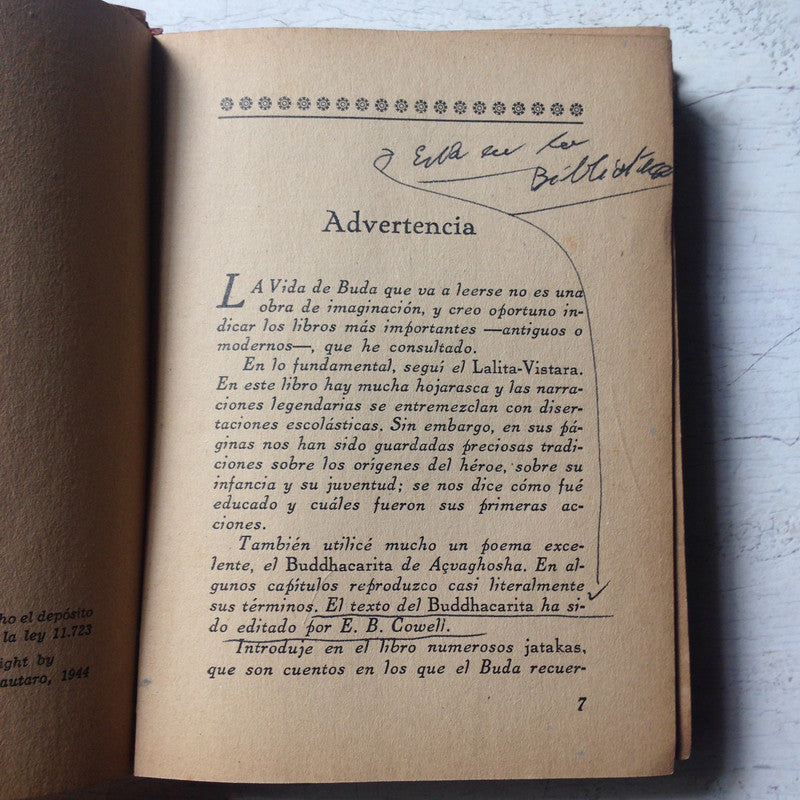 Está en la
Biblioteca
Advertencia
LA Vida de Buda que va a leerse no es una
obra de imaginación, y creo oportuno in-
dicar los libros más importantes —antiguos o
modernos—, que he consultado.
En lo fundamental, seguí el Lalita-Vistara.
En este libro hay mucha hojarasca y las narra-
ciones legendarias se entremezclan con diser-
taciones escolásticas. Sin embargo, en sus pá-
ginas nos han sido guardadas preciosas tradi-
ciones sobre los orígenes del héroe, sobre su
infancia y su juventud; se nos dice cómo fué
educado y cuáles fueron sus primeras ac-
ciones.
También utilicé mucho un poema exce-
lente, el Buddhacarita de Açvaghosha. En al-
gunos capítulos reproduzco casi literalmente
sus términos. El texto del Buddhacarita ha si-
do editado por E. B. Cowell.
Introduje en el libro numerosos jatakas,
que son cuentos en los que el Buda recuer-
7
ho el depósito
la ley 11.723
ight by
autaro, 1944